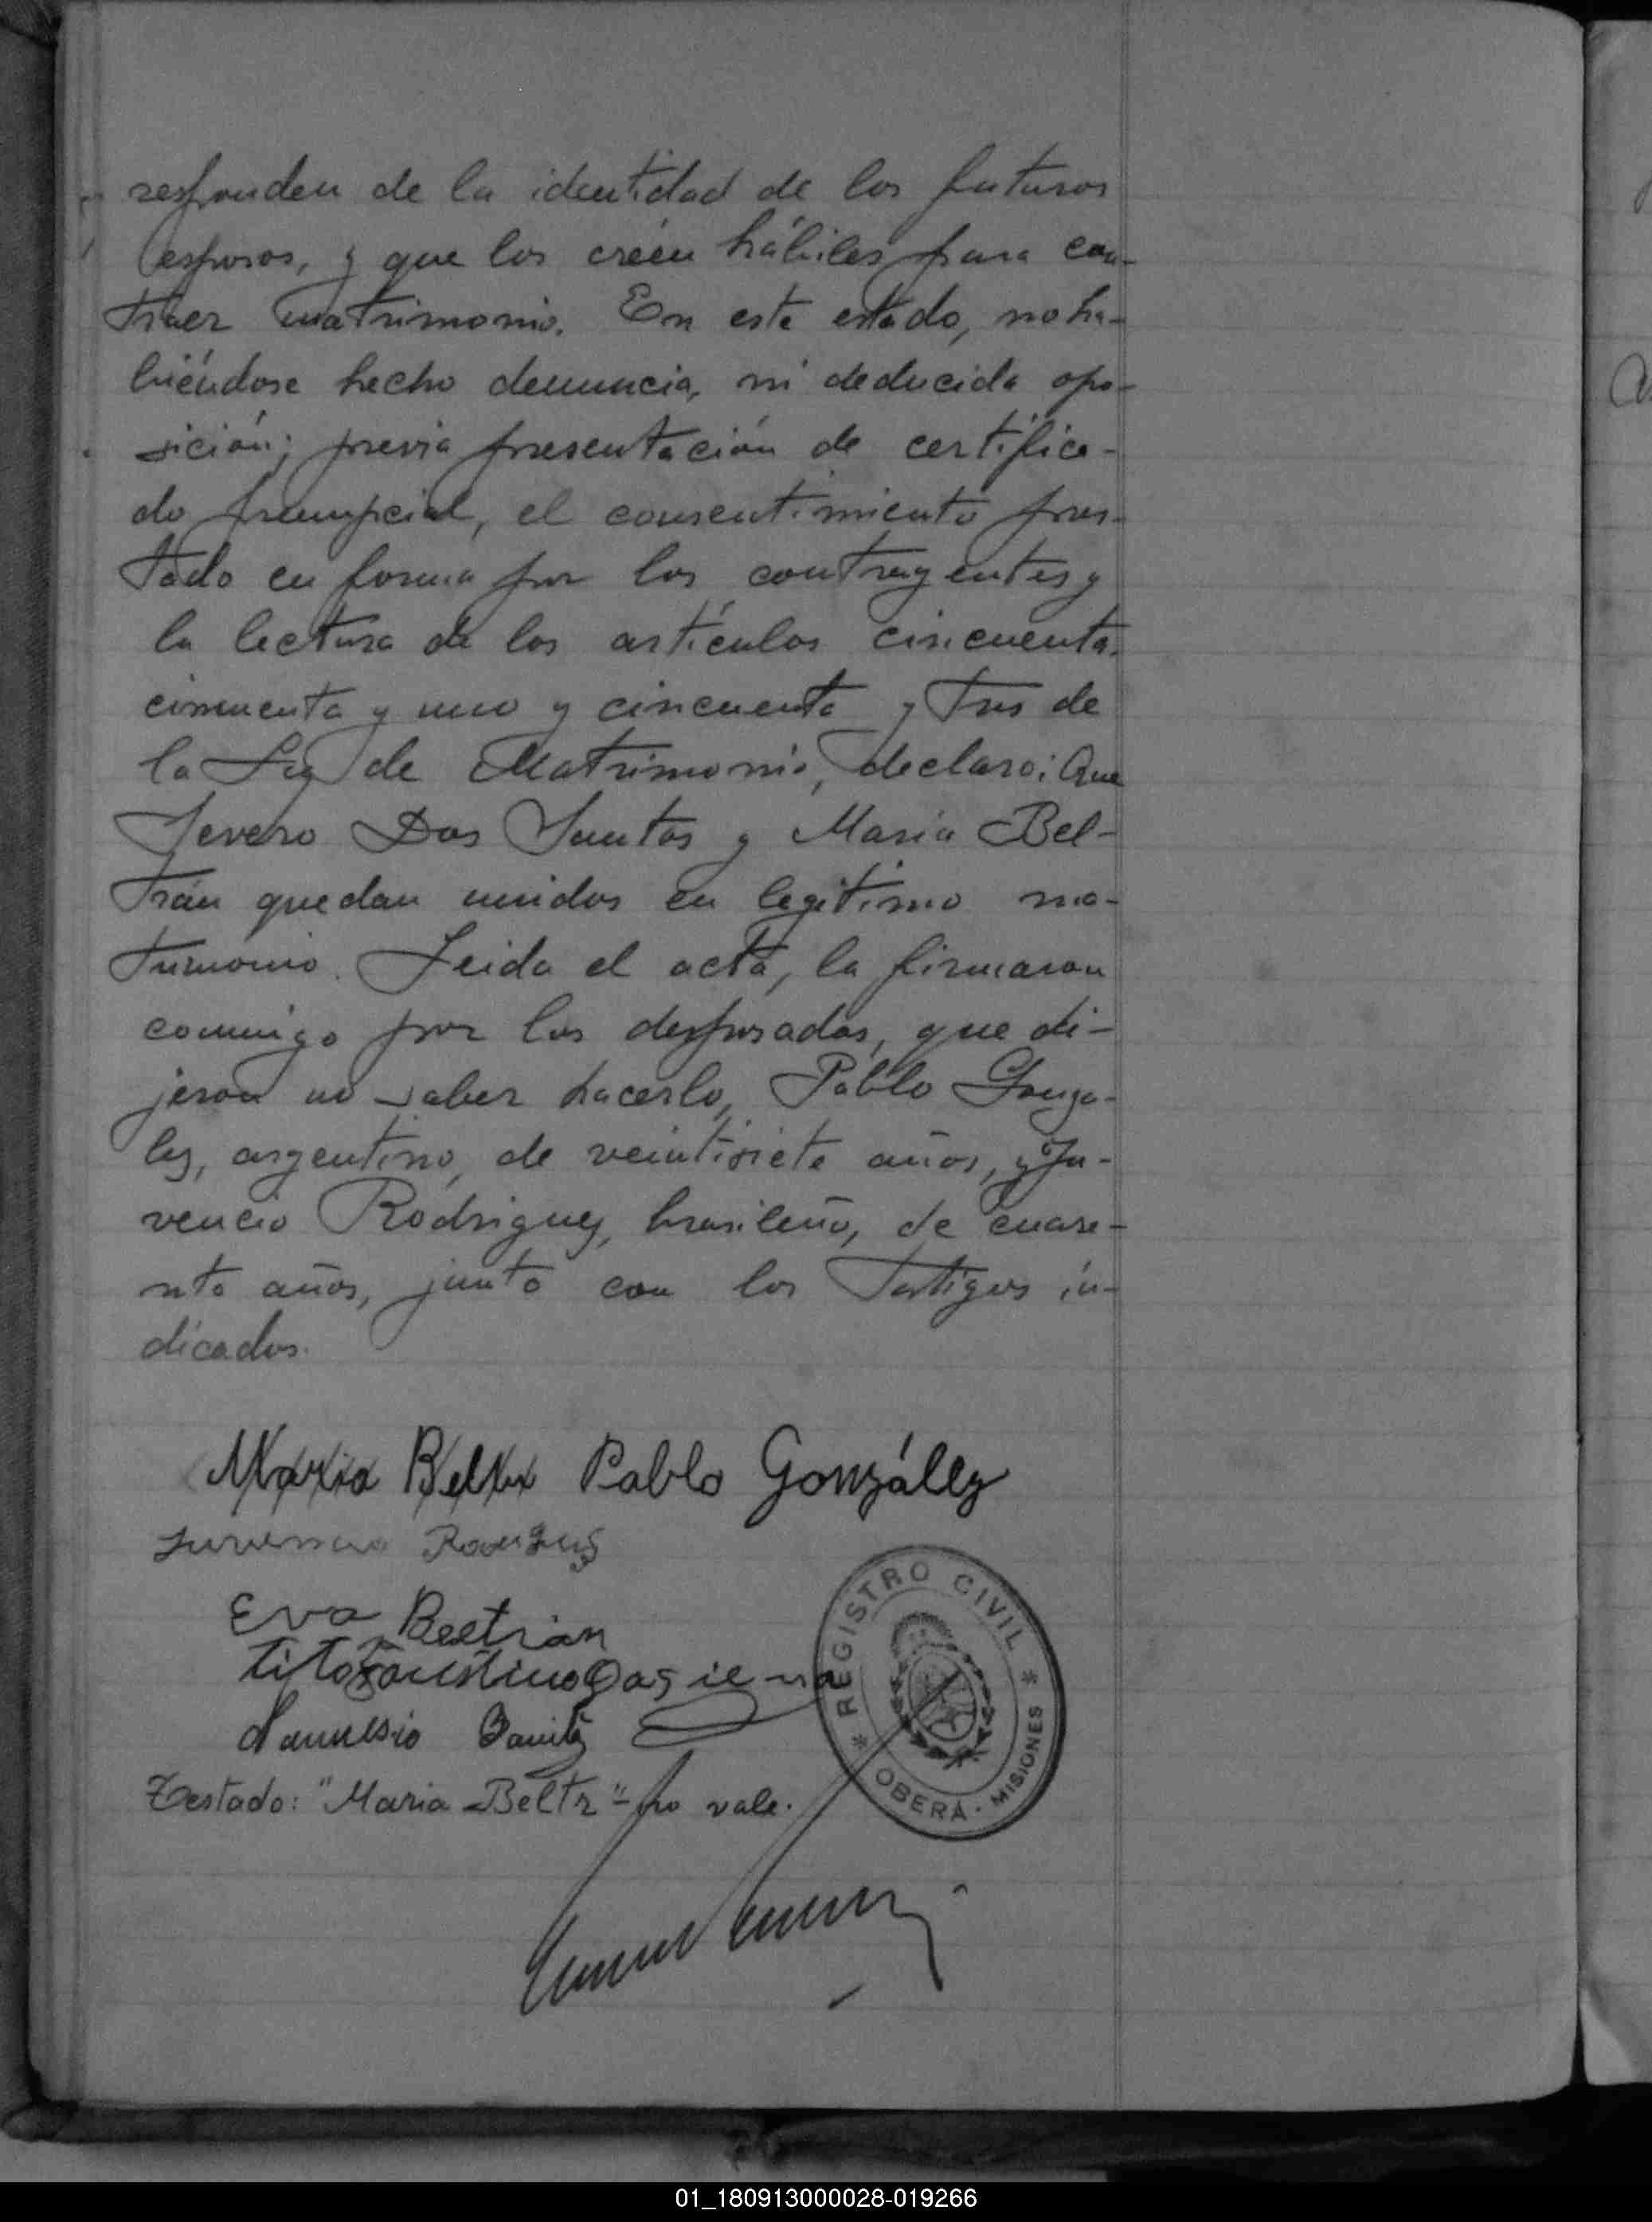 responden de la identidad de los futuros
esposos, y que los créen hábiles para con-
traer matrimonio. En este estado, no ha-
biéndose hecho denuncia, ni deducida opo-
sición; previa presentación de certifica-
do prenupcial, el consentimiento pres-
tado en forma por los contrayentes y
la lectura de los artículos cincuenta,
cincuenta y uno y cincuenta y tres de
la Ley de Matrimonio, declaro: Que
Severo Dos Santos y Maria Bel-
trán quedan unidos en legítimo ma-
trimonio. Leida el acta, la firmaron
conmigo por los desposados, que di-
jeron no saber hacerlo, Pablo Gonza-
lez, argentino, de veintisiete años, y Ju-
vencio Rodriguez, brasileño, de cuare-
nta años, junto con los testigos in-
dicados.
Maria Beltr Pablo González
Juvencio Rodriguez
Eva Beltrian
Tito Faustino
REGISTRO CIVIL
OBERÁ - MISIONES
Testado: "Maria Beltr" - no vale.
01_180913000028-019266